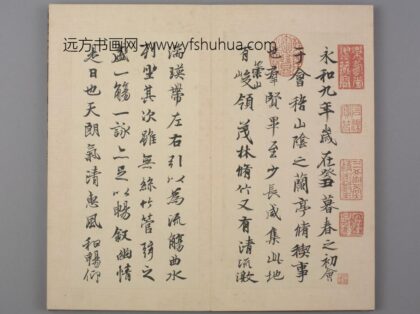 远方书画网 www.yfshuhua.com
永和九年歲在癸丑暮春之初會
于會稽山陰之蘭亭脩稧事
也羣賢畢至少長咸集此地
有崇山峻領茂林脩竹又有清流激
湍暎帶左右引以為流觴曲水
列坐其次雖無絲竹管弦之
盛一觴一詠亦足以暢叙幽情
是日也天朗氣清惠風和暢仰